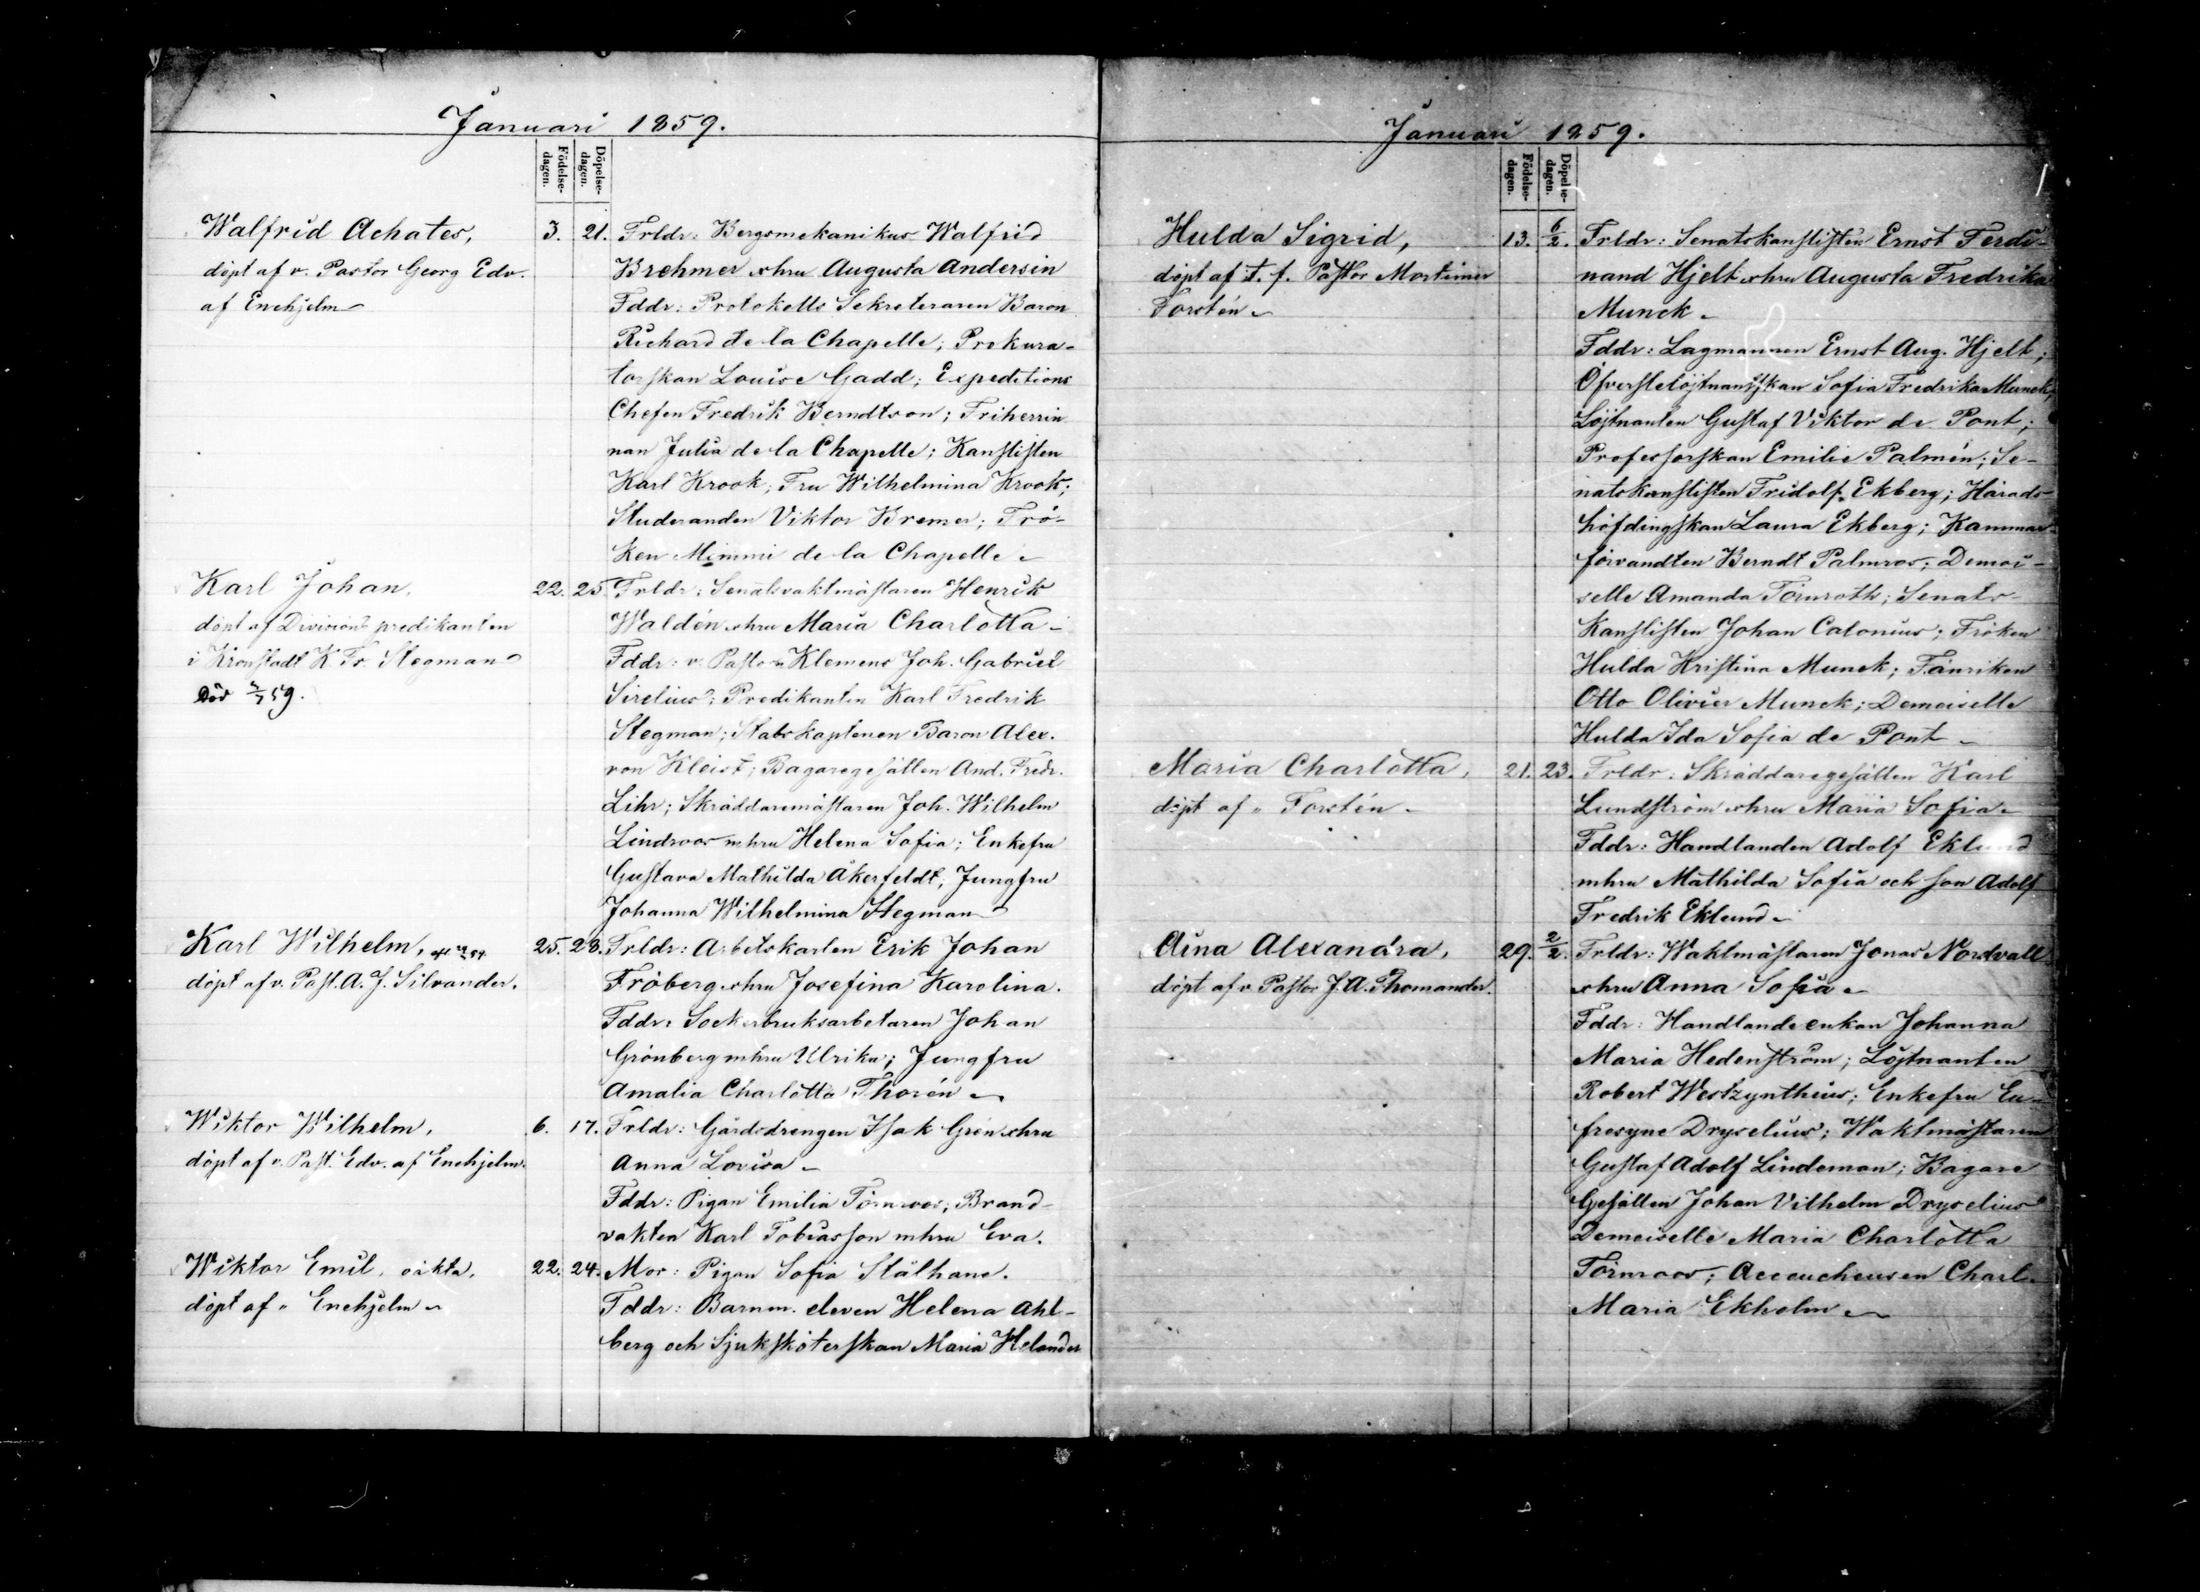 Januari 1859.
Födelse-
dagen.
Döpelse-
dagen.
Walfrid Achates, 3. 21. Frldr: Bergsmekanikus Walfrid
döpt af v. Pastor Georg Edv. Brehmer o hru Augusta Andersin
af Enehjelm Fddr: Protokolls Sekreteraren Baron
Richard de la Chapelle; Prokura-
torskan Louise Gadd; Expeditions
Chefen Fredrik Berndtson; Friherrin
nan Julia de la Chapelle; Kanslisten
Karl Krook; Fru Wilhelmina Krook;
Studeranden Viktor Bremer; Frö-
ken Mimmi de la Chapelle
Karl Johan, 22. 25. Frldr: Senatsvaktmästaren Henrik
döpt af Divisions predikanten Waldén o hru Maria Charlotta
i Kronstadt K Fr. Stegman Fddr: v. Pastorn Klemens Joh. Gabriel
Död 59. Sirelius; Predikanten Karl Fredrik
Stegman; Stabskaptenen Baron Alex.
von Kleist; Bagaregesällen And. Fredr.
Lihr; Skräddaremästaren Joh. Wilhelm
Lindroos m hru Helena Sofia; Enkefru
Gustava Mathilda Åkerfeldt; Jungfru
Johanna Wilhelmina Stegman
Karl Wilhelm, 25. 28. Frldr: Arbetskarlen Erik Johan
döpt af v. Past. A. J. Silvander. Fröberg o hru Josefina Karolina.
Fddr: Sockerbruksarbetaren Johan
Grönberg m hru Ulrika; Jungfru
Amalia Charlotta Thorén
Wiktor Wilhelm, 6. 17. Frldr: Gårdsdrengen Isak Grön o hru
döpt af v. Past. Edv. af Enehjelm. Anna Lovisa
Fddr: Pigan Emilia Törnroos; Brand-
vakten Karl Tobiasson m hru Eva.
Wiktor Emil, oäkta, 22. 24. Mor: Pigan Sofia Stålhane.
döpt af " Enehjelm Fddr: Barnm. eleven Helena Ahl-
berg och Sjuksköterskan Maria Helander
Januari 1859.
Födelse-
dagen.
Döpelse-
dagen.
Hulda Sigrid, 13. 6/2. Frldr: Senatskanslisten Ernst Ferdi-
döpt af t. f. Pastor Mortimer nand Hjelt o hru Augusta Fredrika
Forstén Munck
Fddr: Lagmannen Ernst Aug. Hjelt;
Öfverstelöjtnantskan Sofia Fredrika Munck;
Löjtnanten Gustaf Viktor de Pont;
Professorskan Emilie Palmén; Se-
natskanslisten Fridolf Ekberg; Härads-
höfdingskan Laura Ekberg; Kammar-
förvandten Berndt Palmros; Demoi-
selle Amanda Törnroth; Senats-
Kanslisten Johan Calonius; Fröken
Hulda Kristina Munck; Fänriken
Otto Olivier Munck; Demoiselle
Hulda Ida Sofia de Pont
Maria Charlotta, 21. 23. Frldr: Skräddaregesällen Karl
döpt af " Forstén Lundström o hru Maria Sofia
Fddr: Handlanden Adolf Eklund
m hru Mathilda Sofia och son Adolf
Fredrik Eklund
Aina Alexandra, 29. 2/2. Frldr: Waktmästaren Jonas Nordvall
döpt af v. Pastor J. A. Thomander. o hru Anna Sofia
Fddr: Handlandeenkan Johanna
Maria Hedenström; Löjtnanten
Robert Westzynthius; Enkefru Eu-
fresyne Dryselius; Waktmästaren
Gustaf Adolf Lindeman; Bagare
Gesällen Johan Vilhelm Dryselius
Demoiselle Maria Charlotta
Törnroos; Accoucheusen Charl.
Maria Ekholm